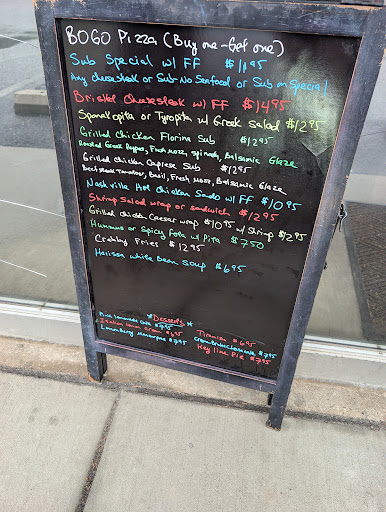 BOGO Pizza (Buy one - Get one)
Sub Special w/ FF $11.95
Any cheesesteak or Sub - No Seafood or Sub on Special
Brisket Cheesesteak w/ FF $14.95
Spanakopita or Tyropita w/ Greek Salad $12.95
Grilled Chicken Florina Sub $12.95
Roasted Greek Peppers, Fresh mozz, spinach, Balsamic Glaze
Grilled Chicken Caprese Sub $12.95
Beefsteak Tomatoes, Basil, Fresh Mozz, Balsamic Glaze
Nashville Hot Chicken Sando w/ FF $10.95
Shrimp Salad wrap or sandwich $12.95
Grilled Chicken Caesar wrap $10.95 w/ Shrimp $12.95
Hummus or Spicy Feta w/ Pita $7.50
Crabby Fries $12.95
Harissa white Bean Soup $6.95
*Desserts*
Pink Lemonade Cake $7.95
Tiramisu $6.95
Italian Lemon Cream $6.95
Creme Brulee Cheesecake $7.95
Lemon Berry Mascarpone $7.95
Key lime Pie $7.95